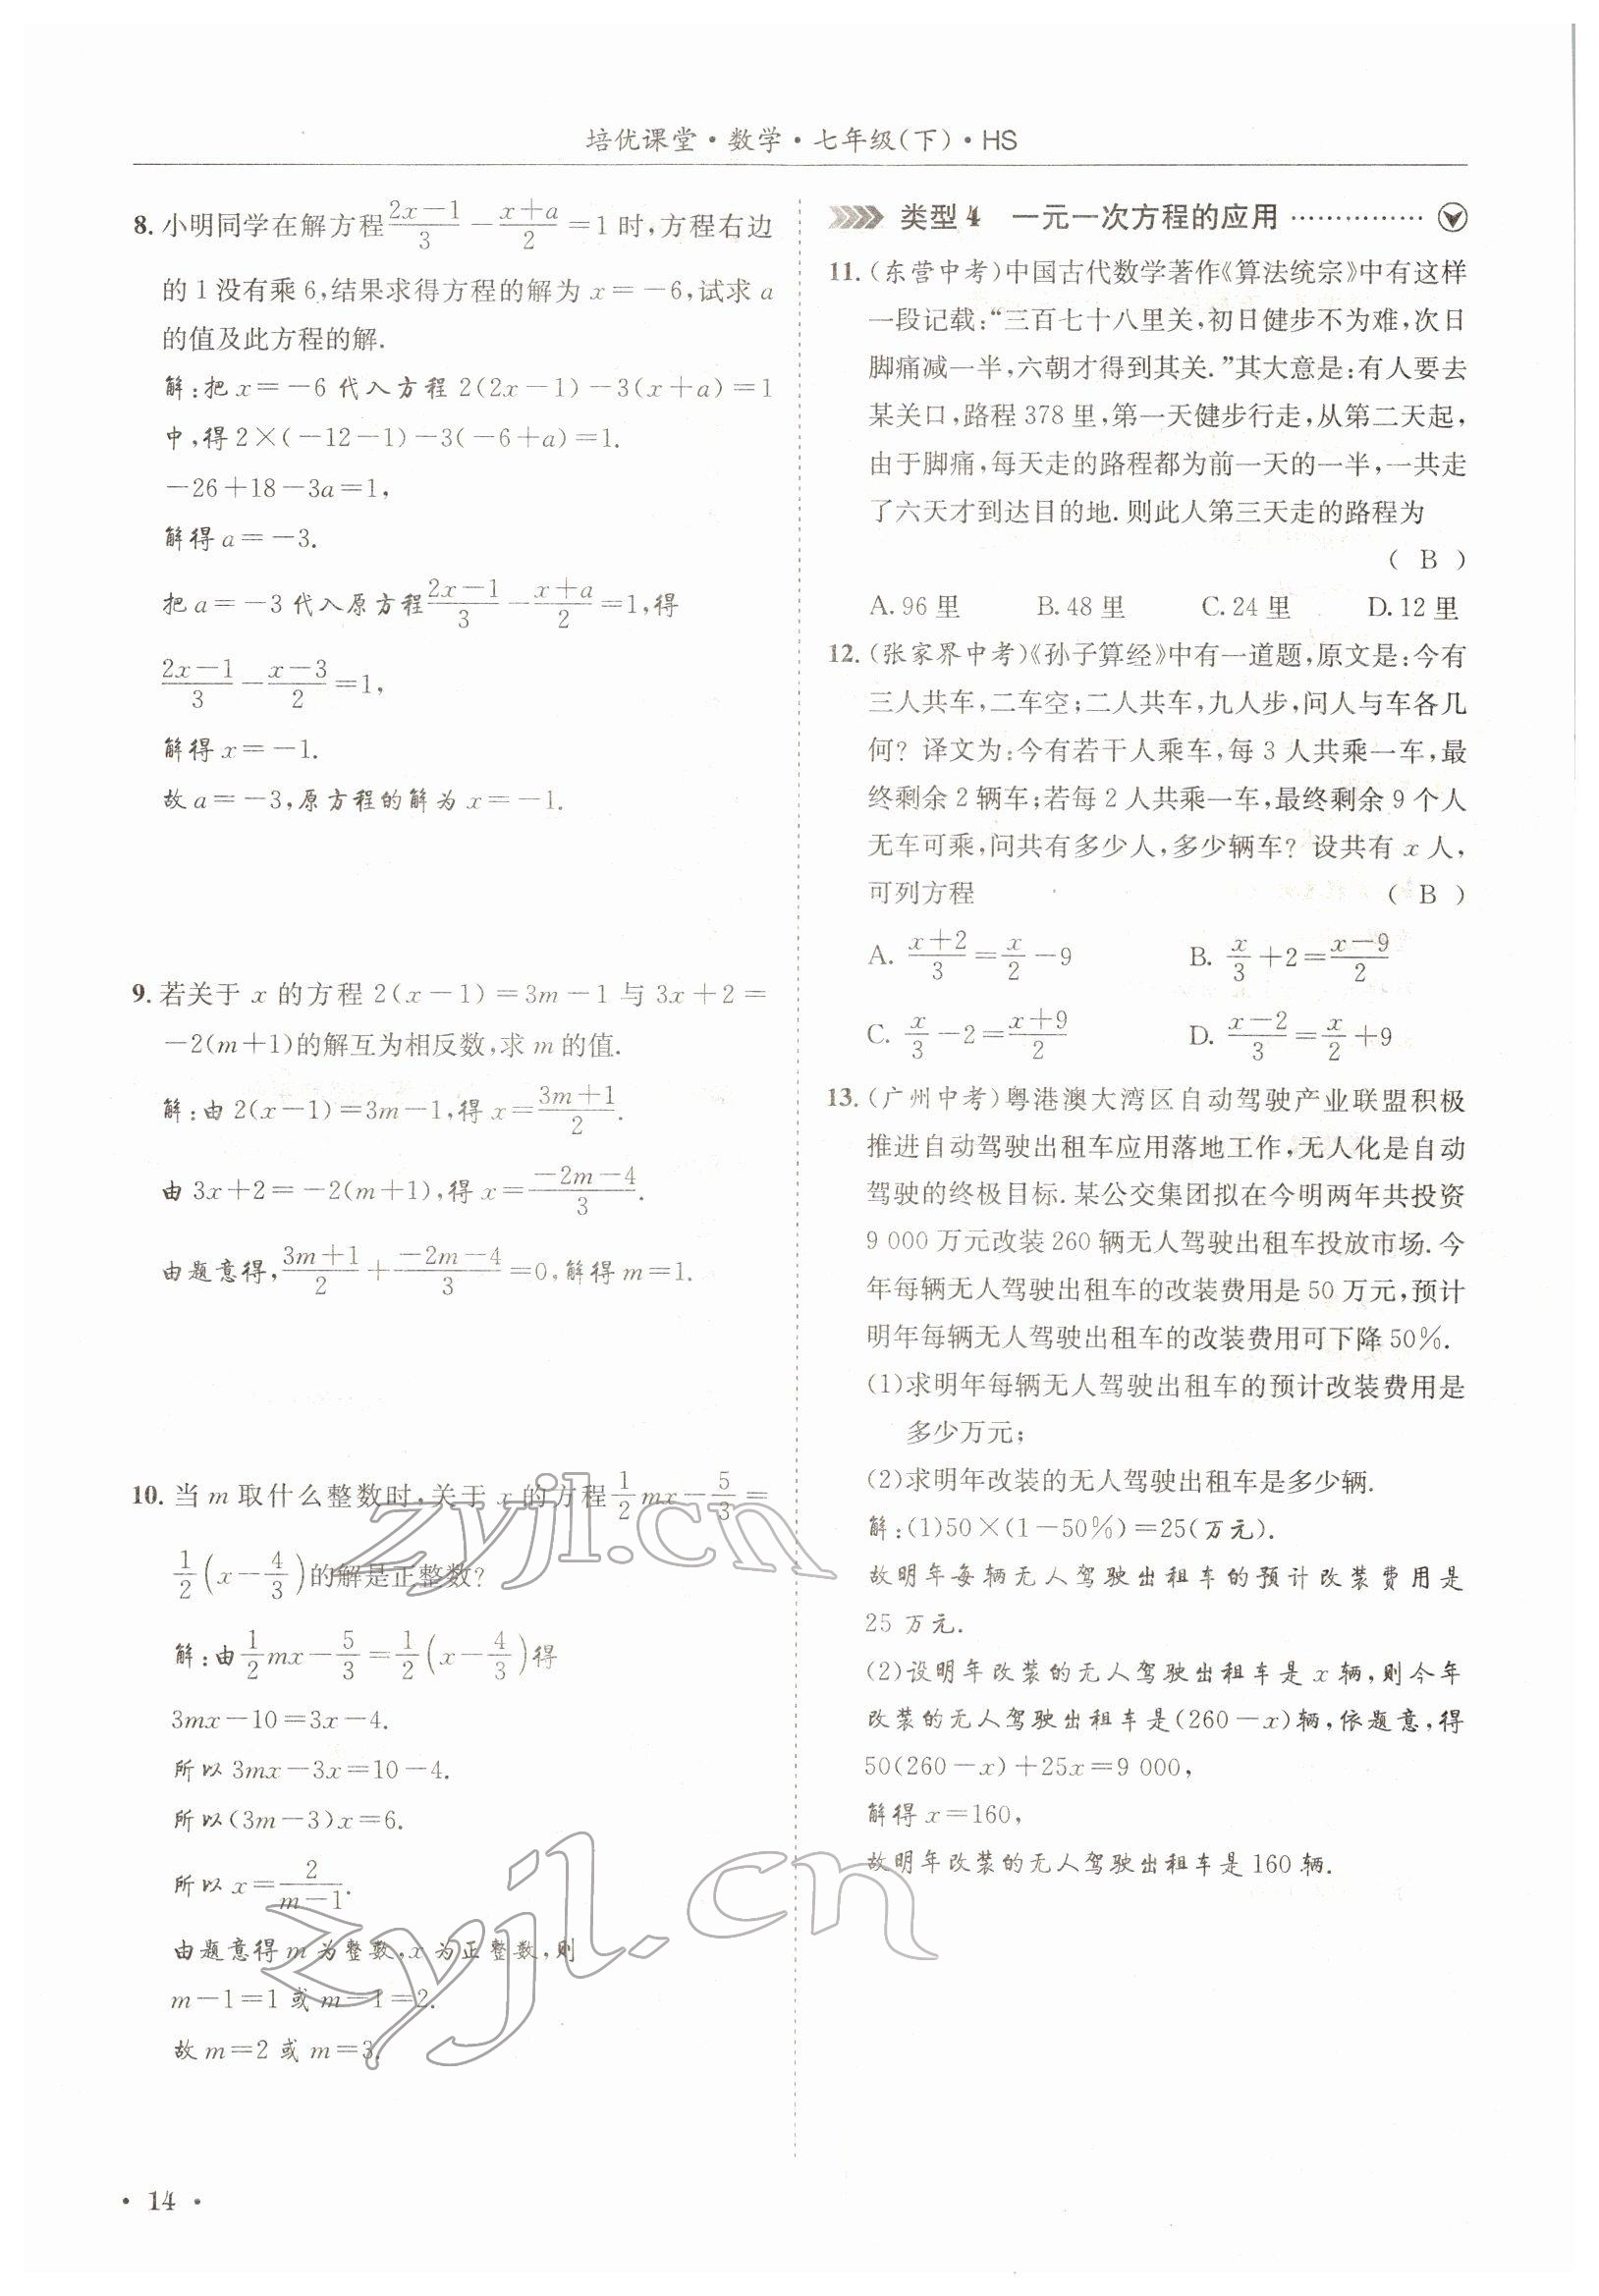 培优课堂·数学·七年级(下)·HS
8. 小明同学在解方程(2x-1)/3-(x+a)/2=1时,方程右边
的1没有乘6,结果求得方程的解为x=-6,试求a
的值及此方程的解.
解:把x=-6代入方程2(2x-1)-3(x+a)=1
中,得2×(-12-1)-3(-6+a)=1.
-26+18-3a=1,
解得a=-3.
把a=-3代入原方程(2x-1)/3-(x+a)/2=1,得
(2x-1)/3-(x-3)/2=1,
解得x=-1.
故a=-3,原方程的解为x=-1.
9. 若关于x的方程2(x-1)=3m-1与3x+2=
-2(m+1)的解互为相反数,求m的值.
解:由2(x-1)=3m-1,得x=(3m+1)/2.
由3x+2=-2(m+1),得x=(-2m-4)/3.
由题意得,(3m+1)/2+(-2m-4)/3=0,解得m=1.
10. 当m取什么整数时,关于x的方程1/2mx-5/3=
1/2(x-4/3)的解是正整数?
解:由1/2mx-5/3=1/2(x-4/3)得
3mx-10=3x-4.
所以3mx-3x=10-4.
所以(3m-3)x=6.
所以x=2/(m-1).
由题意得m为整数,x为正整数,则
m-1=1或m-1=2.
故m=2或m=3.
类型4 一元一次方程的应用……………
11. (东营中考)中国古代数学著作《算法统宗》中有这样
一段记载:“三百七十八里关,初日健步不为难,次日
脚痛减一半,六朝才得到其关.”其大意是:有人要去
某关口,路程378里,第一天健步行走,从第二天起,
由于脚痛,每天走的路程都为前一天的一半,一共走
了六天才到达目的地.则此人第三天走的路程为
( B )
A. 96里 B. 48里 C. 24里 D. 12里
12. (张家界中考)《孙子算经》中有一道题,原文是:今有
三人共车,二车空;二人共车,九人步,问人与车各几
何? 译文为:今有若干人乘车,每3人共乘一车,最
终剩余2辆车;若每2人共乘一车,最终剩余9个人
无车可乘,问共有多少人,多少辆车? 设共有x人,
可列方程 ( B )
A. (x+2)/3=x/2-9 B. x/3+2=(x-9)/2
C. x/3-2=(x+9)/2 D. (x-2)/3=x/2+9
13. (广州中考)粤港澳大湾区自动驾驶产业联盟积极
推进自动驾驶出租车应用落地工作,无人化是自动
驾驶的终极目标.某公交集团拟在今明两年共投资
9 000万元改装260辆无人驾驶出租车投放市场.今
年每辆无人驾驶出租车的改装费用是50万元,预计
明年每辆无人驾驶出租车的改装费用可下降50%.
(1)求明年每辆无人驾驶出租车的预计改装费用是
多少万元;
(2)求明年改装的无人驾驶出租车是多少辆.
解:(1)50×(1-50%)=25(万元).
故明年每辆无人驾驶出租车的预计改装费用是
25万元.
(2)设明年改装的无人驾驶出租车是x辆,则今年
改装的无人驾驶出租车是(260-x)辆,依题意,得
50(260-x)+25x=9 000,
解得x=160,
故明年改装的无人驾驶出租车是160辆.
zyjl.cn
zyjl.cn
·14·